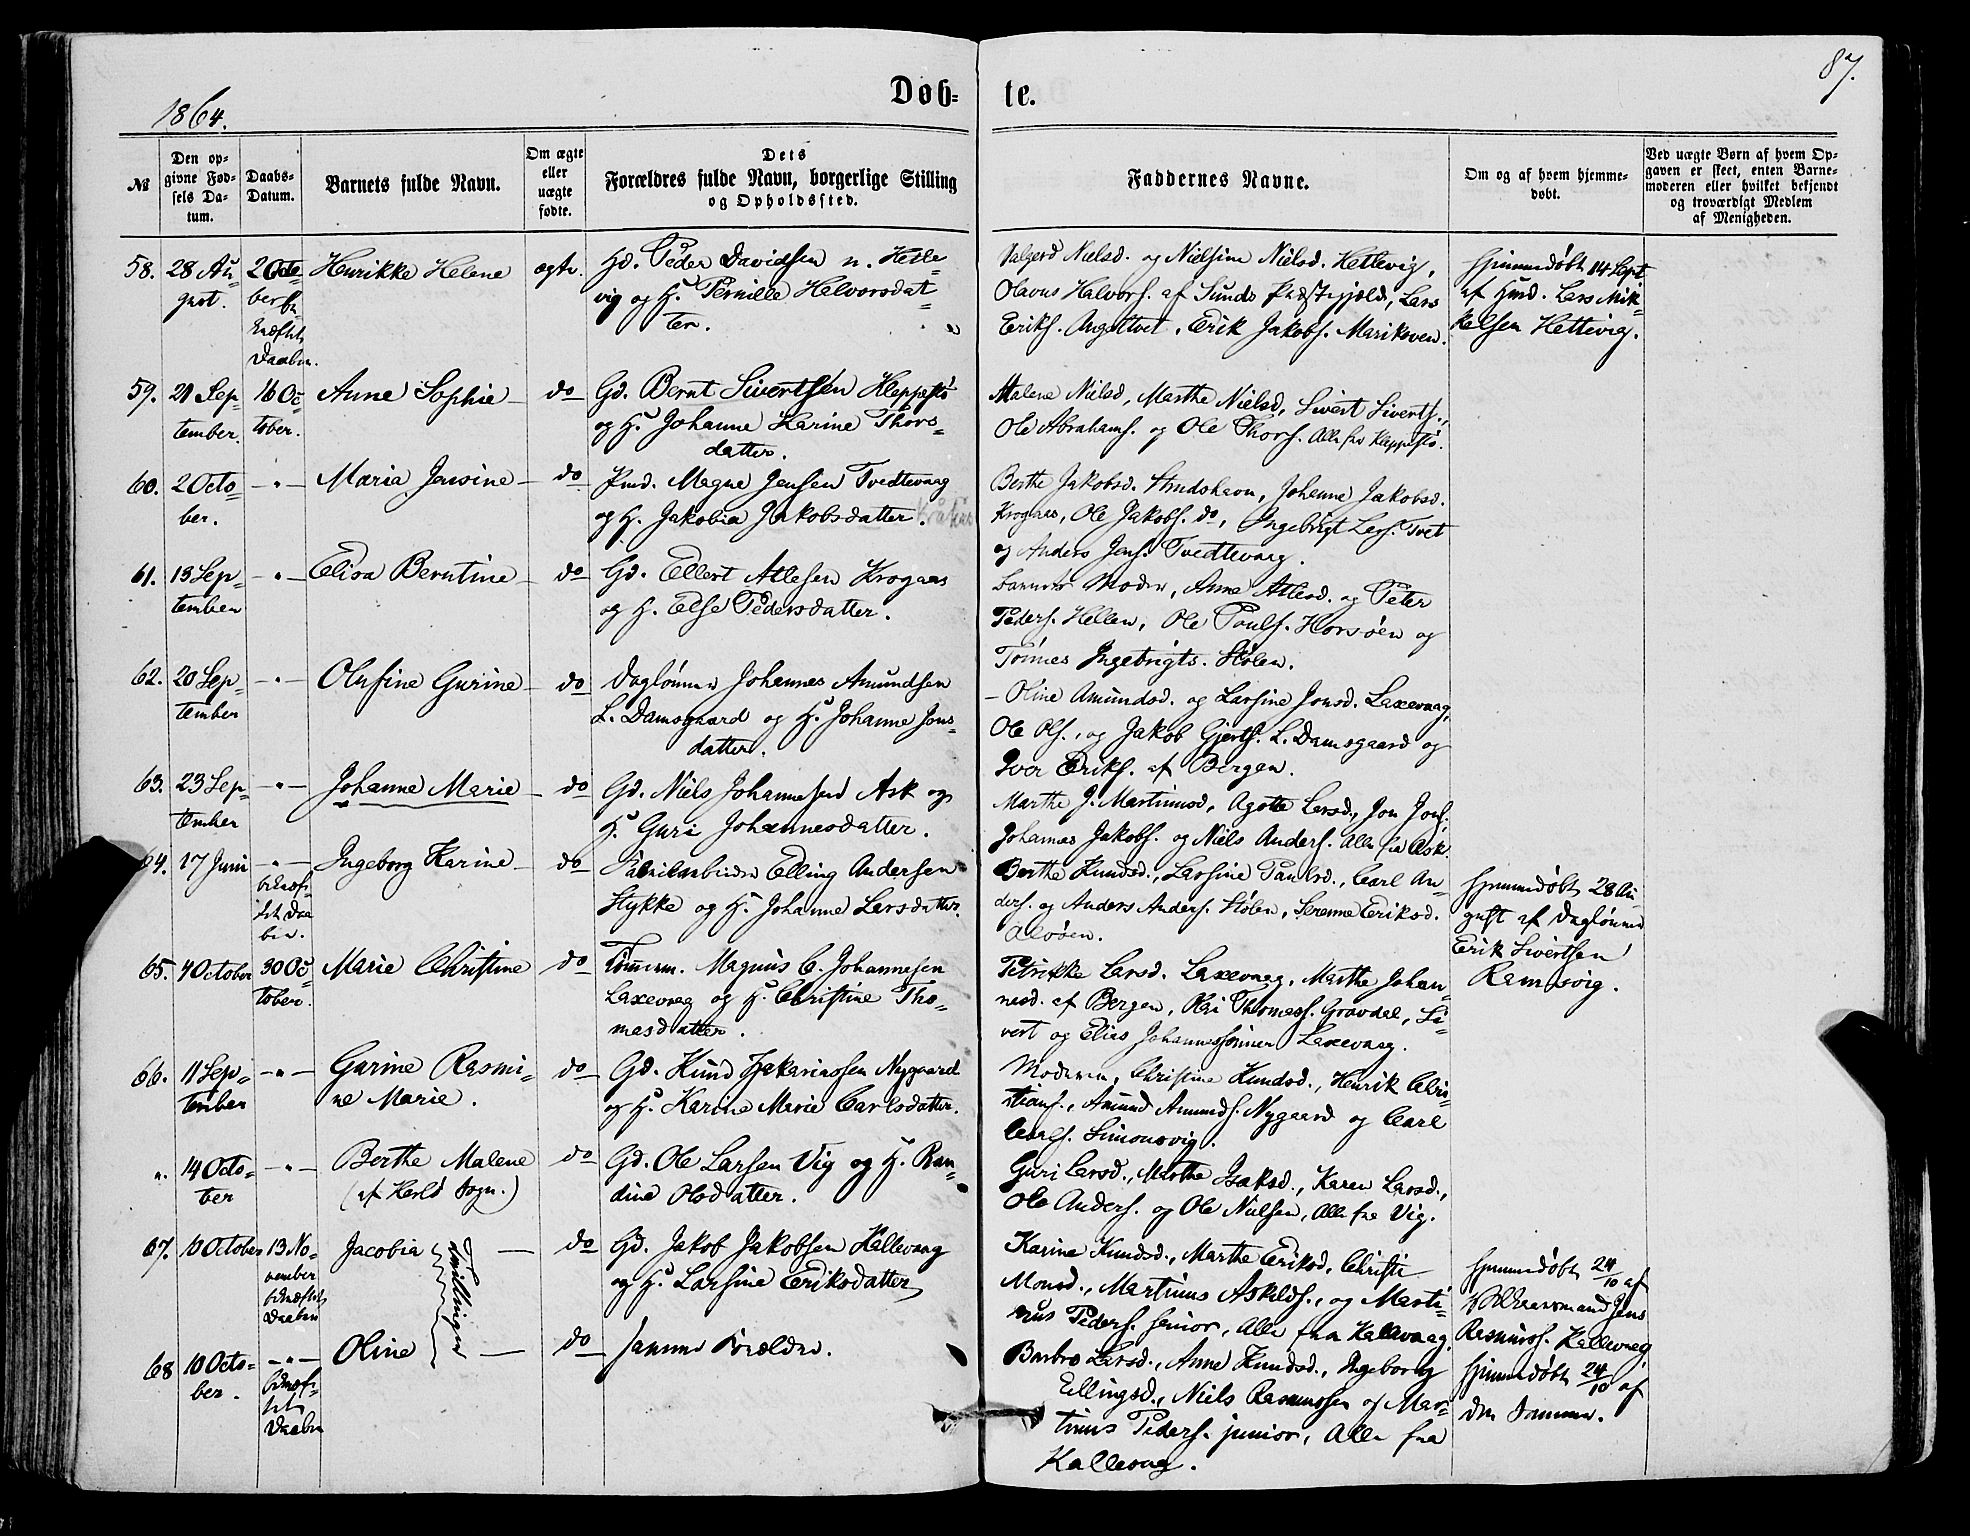 1864.
Døb= te.
87.
№
Den op=
givne Fød=
sels Da=
tum.
Daabs=
Datum.
Barnets fulde Navn.
Om ægte
eller
uægte
fødte.
Dets
Forældres fulde Navn, borgerlige Stilling
og Opholdssted.
Faddernes Navne.
Om og af hvem hjemme=
døbt.
Ved uægte Børn af hvem Op=
gaven er skeet, enten Barne=
moderen eller hvilket bekjendt
og troværdigt Medlem
af Menigheden.
58. 28 Au= 2 Octo= Henrikke Helene ægte. Gd. Peder Davidsen n. Hetle=
gust. ber
vig og H. Pernille Halvorsdat=
ter.
Daaben.
Valgerd Nielsd. og Nielsine Nielsd. Hetlevig,
Olavus Halvors. af Sunds Præstegjæld, Lars
Eriks. Ingeltvet, Erik Jakobs. Marikoven.
Hjemmedøbt 14 Sept
af Lars Mik=
kelsen Hetlevig.
59. 21 Sep= 16 Oc= Anne Sophie do Gd. Bernt Sivertsen Kleppestø
tember. tober. og H. Johanne Karine Thors=
datter.
Malene Nielsd, Marthe Nielsd, Sivert Siverts.,
Ole Abrahams. og Ole Thors. Alle fra Kleppestø.
60. 2 Octo= -"- Maria Jensine do Magne Jensen Tvedtevaag
ber. og H. Jakobia Jakobsdatter.
Berthe Jakobsd. Strudshavn, Johanne Jakobsd.
Krogaas, Ole Jakobs. do, Ingebrigt Lars. Tvet
og Anders Jens. Tvedtevaag.
61. 13 Sep= -"- Elisa Berntine do Gd. Ellert Atlesen Krogaas
tember og H. Else Pedersdatter.
Barnets Moder, Anne Atlesd. og Peter
Peders. Hellen, Ole Pouls. Horsøen og
Tønnes Ingebrigts. Stølen.
62. 20 Sep= -"- Olufine Gurine do Daglønner Johannes Amundsen
tember L. Damsgaard og H. Johanne Jons=
datter.
- Oline Amundsd. og Larsine Jonsd. Laxevaag,
Ole Ols., og Jakob Gjerts. L. Damsgaard og
Iver Eriks. af Bergen.
63. 23 Sep= -"- Johanne Marie do Gd. Niels Johannesen Ask og
tember H. Guri Johannesdatter.
Marthe J. Martinusd, Agothe Larsd., Jon Jons.,
Johannes Jakobs. og Niels Anders. Alle fra Ask.
64. 17 Juni -"- Ingeborg Karine do Fabrikarbeider Elling Andersen
Stykke og H. Johanne Larsdatter.
Berthe Knudsd., Larsine Paulsd., Carl An=
ders. og Anders Anders. Stølen, Serenne Eriksd.
Alvøen.
Hjemmedøbt 28 Au=
gust af Daglønner
Erik Sivertsen
65. 4 October 30 Oc= Marie Christine do Tømerm. Magnus C. Johannesen
tober. Laxevaag og H. Christine Tho=
masdatter.
Petrikke Larsd. Laxevaag, Marthe Johan=
nesd. af Bergen, Thomass. Gravdal, Si=
vert og Elias Johannessønner Laxevaag.
66. 11 Sep= -"- Gurine Rasmi= do Gd. Knud Zakariassen Nygaard
tember ne Marie. og H. Karine Marie Carlsdatter.
Moderen, Christine Knudsd., Henrik Chris=
tians., Amund Amunds. Nygaard og Carl
Carls. Simonsvig.
". 14 Octo= -"- Berthe Malene do Gd. Ole Larsen Vig og H. Ran=
ber (af Herlø Sogn.) dine Olsdatter.
Guri Larsd., Marthe Isaksd., Karen Larsd.,
Ole Anders. og Ole Nielsen, Alle fra Vig.
67. 10 October 13 No= Jacobia Tvillinger do Gd. Jakob Jakobsen Kallevaag
vember og H. Larsine Eriksdatter
Daaben
Karine Knudsd., Marthe Eriksd, Christi
Monsd., Martinus Askilds., og Marti=
nus Peders. senior, Alle fra Kallevaag.
Hjemmedøbt 24/10 af
Jens
Rasmuss. Kallevaag
68 10 Octo= -"- Oline do samme Forældre.
ber.
Daaben
Barbro Larsd., Anne Knudsd., Ingeborg
Ellingsd., Niels Rasmussen og Mar=
tinus Peders. junior, Alle fra
Kallevaag.
Hjemmedøbt 24/10 af
den Samme.